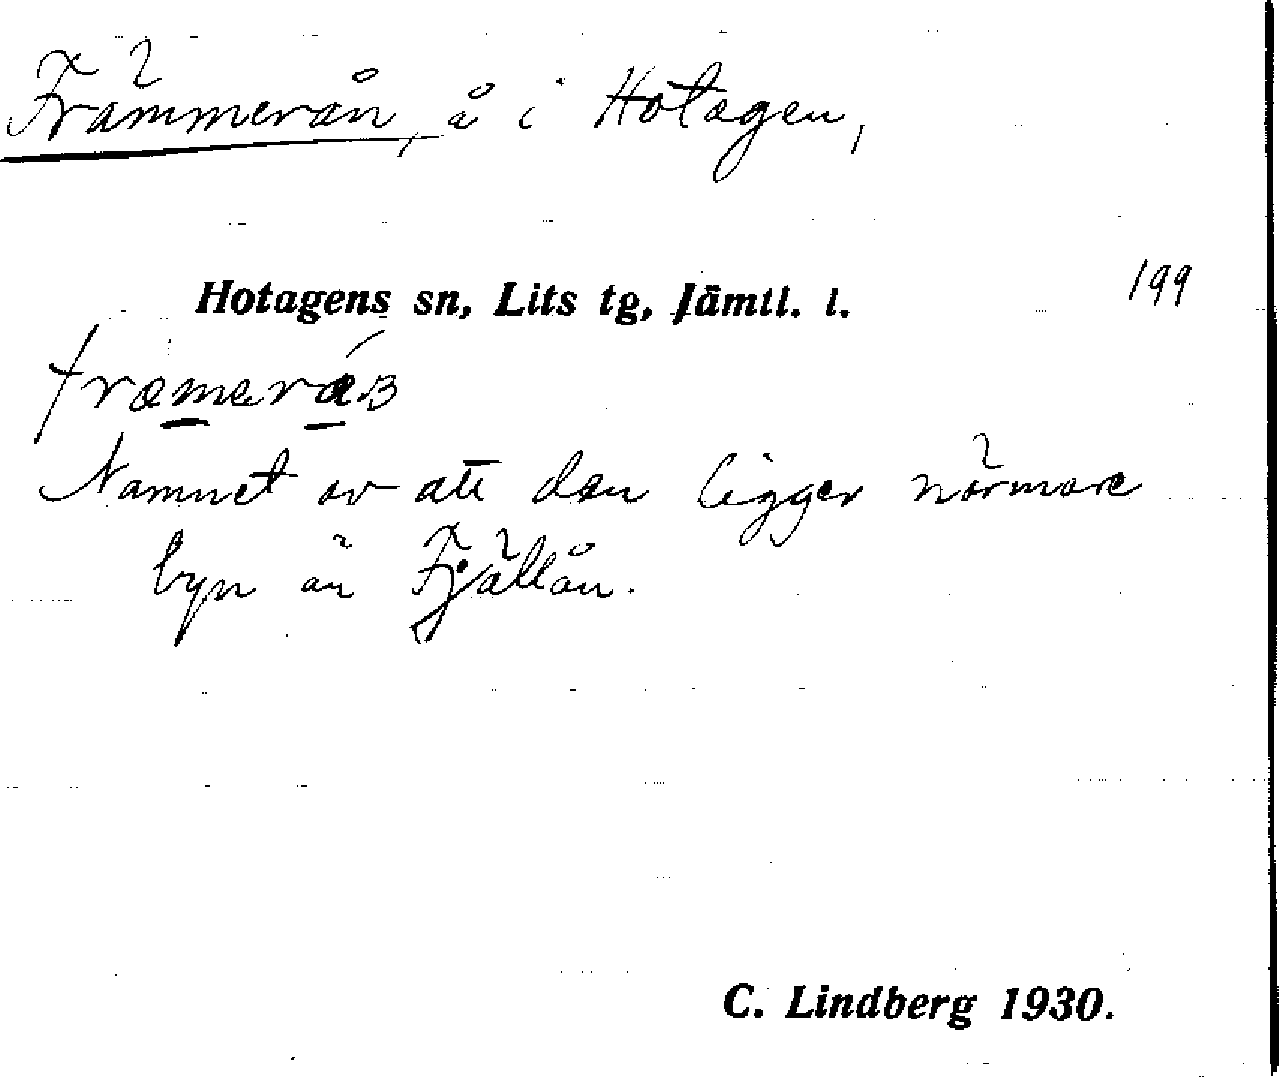 Främmerån, å i Hotagen,
Hotagens sn, Lits tg, Jämtl. l. 199
Namnet av att den ligger närmare
byn än Fjällån.
C. Lindberg 1930.